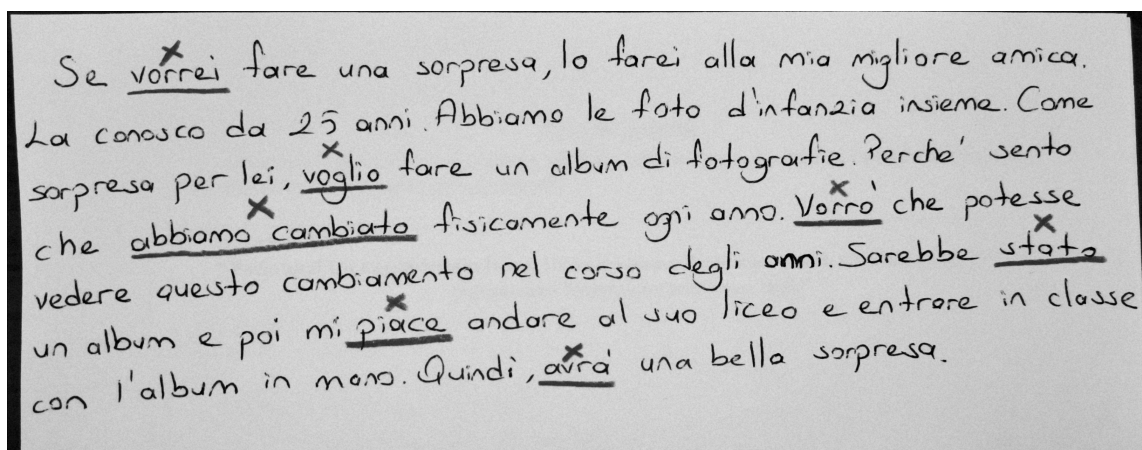 Se vorrei fare una sorpresa, lo farei alla mia migliore amica.
La conosco da 25 anni. Abbiamo le foto d'infanzia insieme. Come
sorpresa per lei, voglio fare un album di fotografie. Perche' sento
che abbiamo cambiato fisicamente ogni anno. Vorrò che potesse
vedere questo cambiamento nel corso degli anni. Sarebbe stato
un album e poi mi piace andare al suo liceo e entrare in classe
con l'album in mano. Quindi, avrà una bella sorpresa.